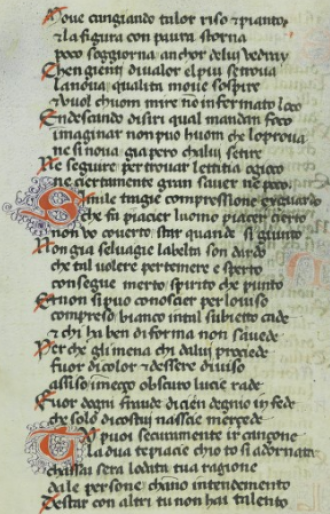 Move cangiando color riso e pianto
e la figura con paura storna
poco soggiorna anchor di lui vedrai
Chen gienti di valor el piu si trova
La nova qualita move sospire
e vuol chuom mire no in fermato loco
Et destandosi ira qual manda foco
imaginar non puo huom che lo prova
ne si nova gia pero cha lui si tire
Ne seguire per trovar letitia o gioco
ne ciertamente gran saver ne poco
Simile tragie compressione e sguardo
che fa piacier luomo piacer cierto
non vo coverto star quande si giunto
Non gia selvagie la belta son dardo
che tal volere per temere e sperto
consegue merto spirito che punto
E non si puo conoscier per lo viso
compreso bianco in tal subietto cade
e chi ha ben di forma non si vede
Per che gli mena chi da lui prociede
fuor di color e dessere diviso
assiso mezo obscuro lucie rade
Fuor dogni fraude dicien degnio in fede
che solo di costui nascie merzede
Tu puoi securamente ir canzone
la dua te piacie chio to si adornata
chassai sera lodata tua ragione
da le persone channo intendemento
Destar con altri tu non hai talento